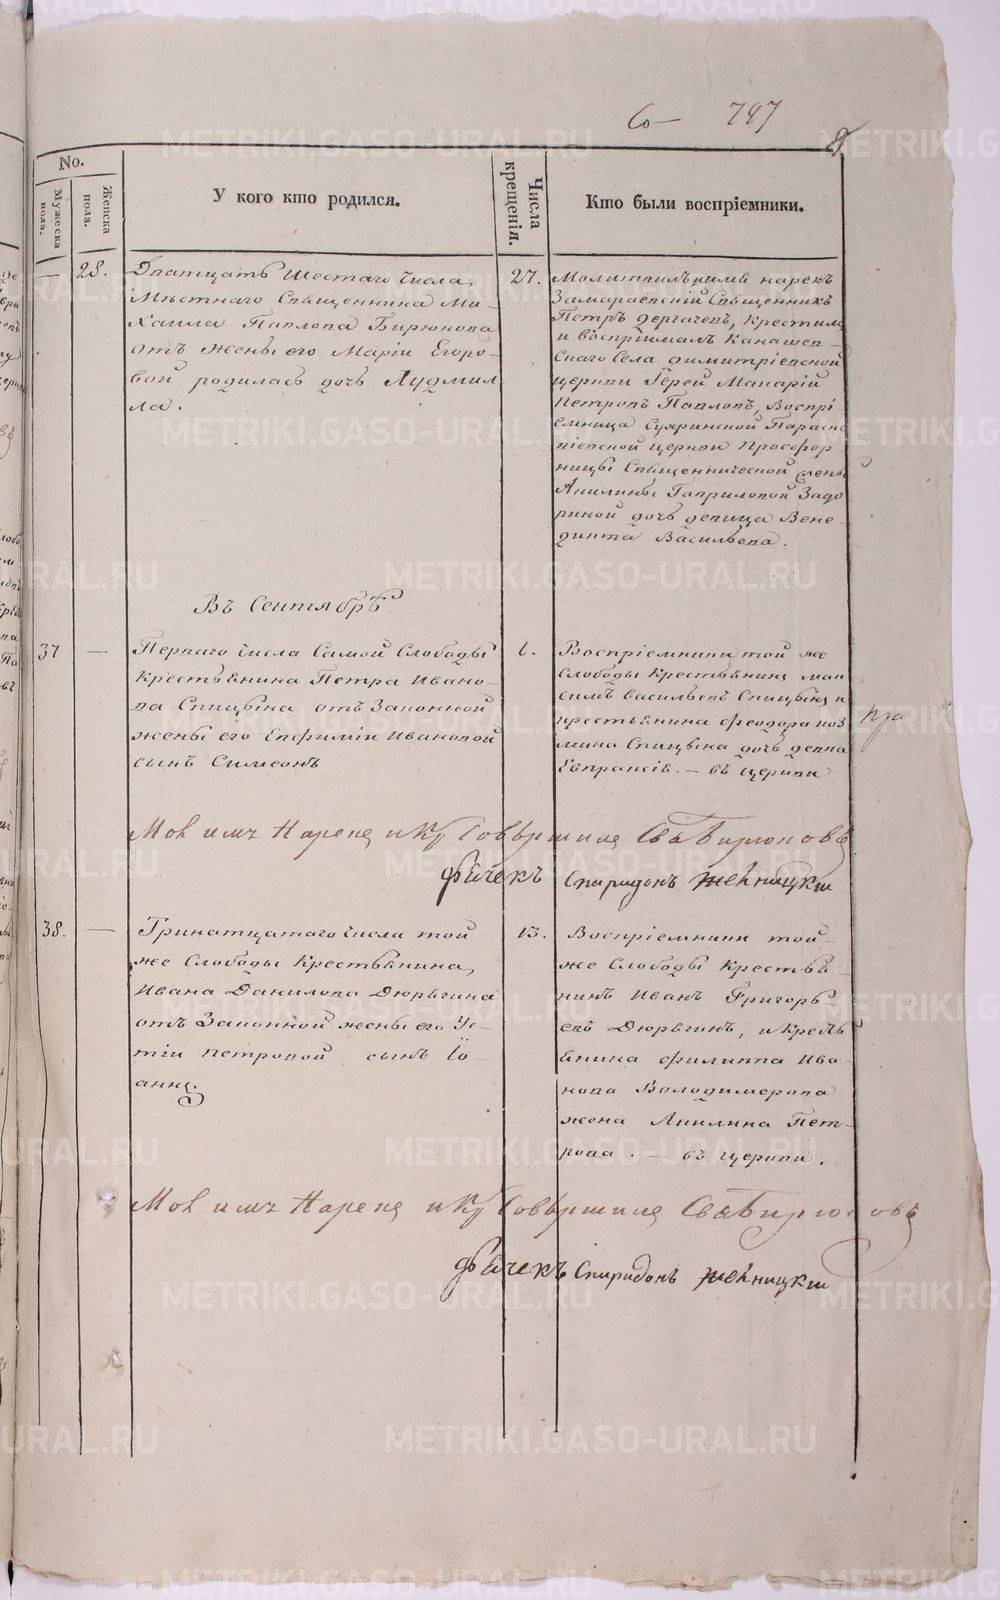 Со— 797
9
No.
Мужеска пола.
Женска пола.
У кого кто родился.
Числа крещенія.
Кто были воспріемники.
— 28.
Дватцать шестаго числа,
Мѣстнаго Священника Ми-
хаила Павлова Бирюкова
отъ жены его Маріи Егоро-
вой родилась дочь Людмил-
ла.
27.
Молитвилъ имя нарекъ
Замараевскій Священникъ
Петръ Дергачевъ, крестилъ
и воспріималъ Канашев-
скаго Села Димитріевской
церкви Іерей Макарій
Петровъ Павловъ, Воспрі-
емница Сухринской Параске
віевской церкви Просфор
ницы Священнической жены
Акилины Гавриловой Задо
риной дочь девица Вене-
дикта Васильева.
Въ Сентябрѣ
37 —
Перваго числа Самой Слободы
Крестьянина Петра Ивано-
ва Спицына отъ Законной
жены его Евфиміи Ивановой
сынъ Симеонъ
1.
Воспріемники той же
Слободы Крестьянинъ Мак
симъ Васильевъ Спицынъ и
крестьянина Феодора Коз
мина Спицына дочь девка
Евпраксія. — въ церкви
Мол имя Нарекъ и Кр Совершилъ Св Бирюковъ
Дьячекъ Спиридонъ
38. —
Тринатцатаго числа той
же Слободы Крестьянина,
Ивана Данилова Дюрягина
отъ Законной жены его Ус-
тіи Петровой сынъ Іо-
аннъ.
13.
Воспріемники той-
же Слободы Крестья-
нинъ Иванъ Григорь-
евъ Дюрягинъ, и Крест
янина Филиппа Ива-
нова Володимерова
жена Акилина Пет-
рова. — въ церкви.
Мол имя Нарекъ и Кр Совершилъ Св Бирюковъ
Дьячекъ Спиридонъ
METRIKI.GASO-URAL.RU